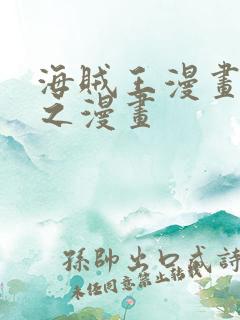 海賊王漫畫
之漫畫
孫帥出口成詩
未經同意禁止轉載